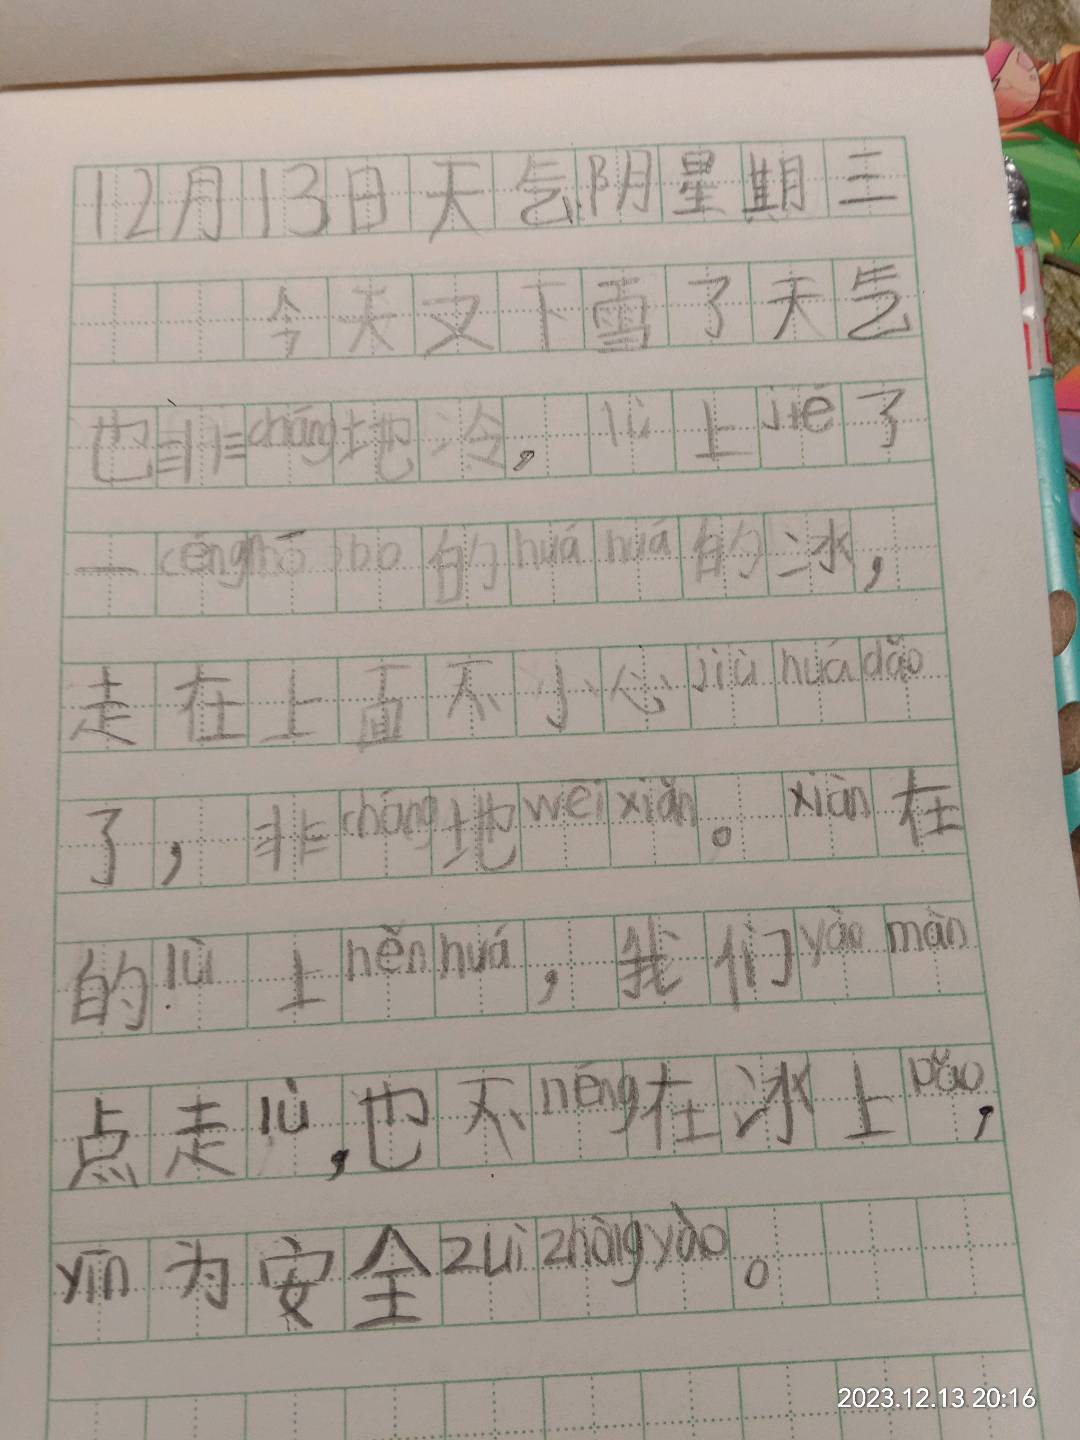 12月13日天气阴星期三
今天又下雪了天气
也非cháng地冷，lù上jié了
一céng bo的huá huá的冰，
走在上面不小心jiù huá dǎo
了，非cháng地wēi xiǎn。xiàn在
的lù上hěn huá，我们yào màn
点走lù，也不néng在冰上pǎo，
yīn为安全zuì zhòng yào。
2023.12.13 20:16